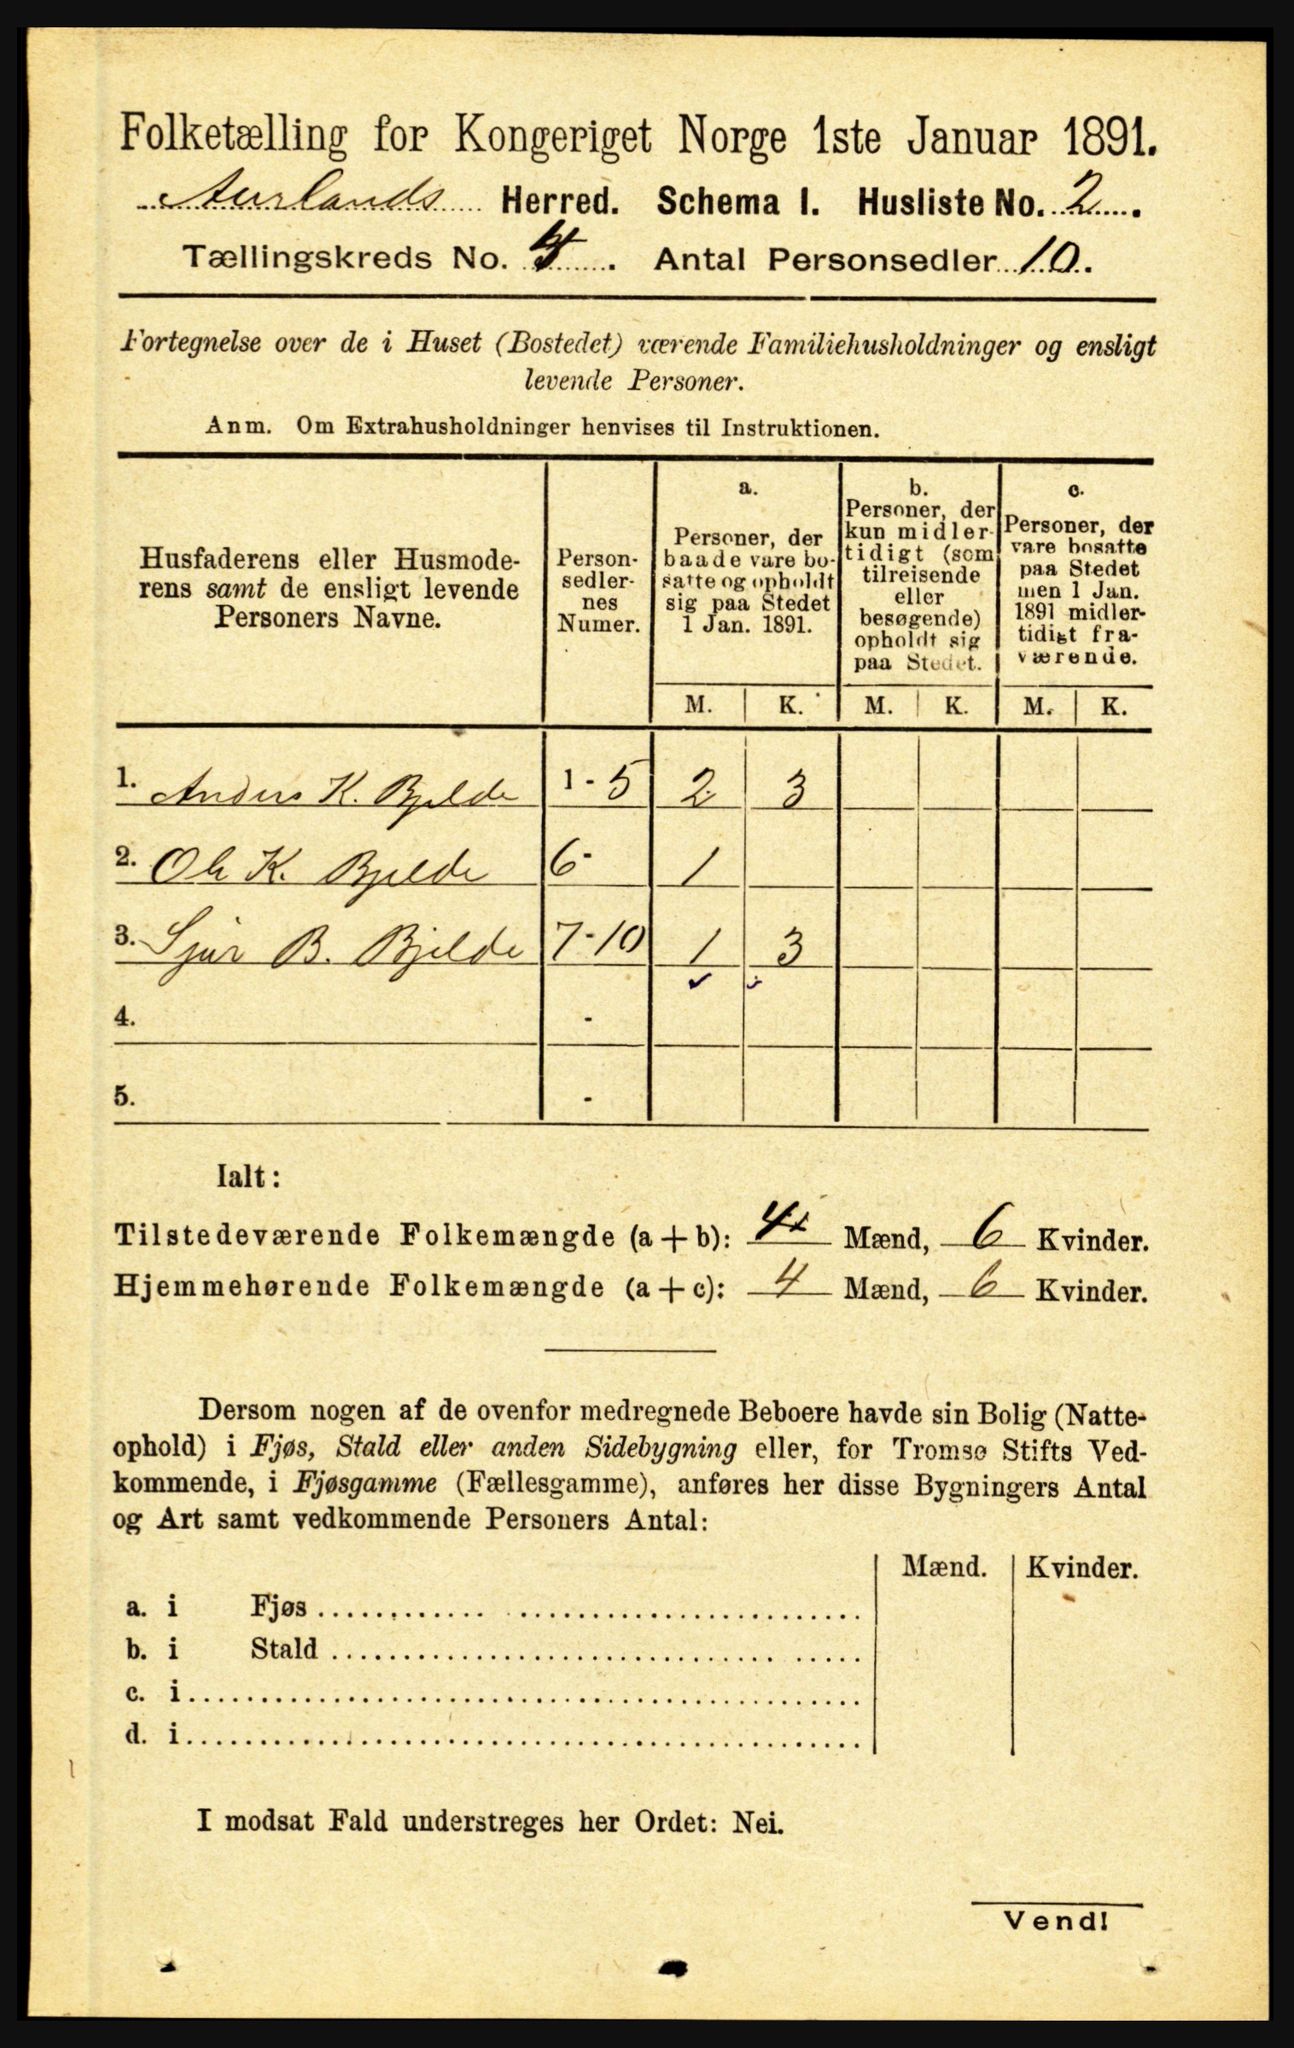 Folketælling for Kongeriget Norge 1ste Januar 1891.
Aurlands Herred. Schema I. Husliste No. 2.
Tællingskreds No. 4. Antal Personsedler 10.
Fortegnelse over de i Huset (Bostedet) værende Familiehusholdninger og ensligt
levende Personer.
Anm. Om Extrahusholdninger henvises til Instruktionen.
Husfaderens eller Husmode-
rens samt de ensligt levende
Personers Navne.
Person-
sedler-
nes
Numer.
a.
Personer, der
baade vare bo-
satte og opholdt
sig paa Stedet
1 Jan. 1891.
b.
Personer, der
kun midler-
tidigt (som
tilreisende
eller
besøgende)
opholdt sig
paa Stedet.
c.
Personer, der
vare bosatte
paa Stedet
men 1 Jan.
1891 midler-
tidigt fra-
værende.
M. K. M. K. M. K.
1. Anders K. Bjelde 1 - 5 2 3
2. Ole K. Bjelde 6 - 1
3. Sjur B. Bjelde 7 - 10 1 3
4. -
5. -
Ialt:
Tilstedeværende Folkemængde (a + b): 4 Mænd, 6 Kvinder.
Hjemmehørende Folkemængde (a + c): 4 Mænd, 6 Kvinder.
Dersom nogen af de ovenfor medregnede Beboere havde sin Bolig (Natte-
ophold) i Fjøs, Stald eller anden Sidebygning eller, for Tromsø Stifts Ved-
kommende, i Fjøsgamme (Fællesgamme), anføres her disse Bygningers Antal
og Art samt vedkommende Personers Antal:
Mænd. Kvinder.
a. i Fjøs
b. i Stald
c. i
d. i
I modsat Fald understreges her Ordet: Nei.
Vend!